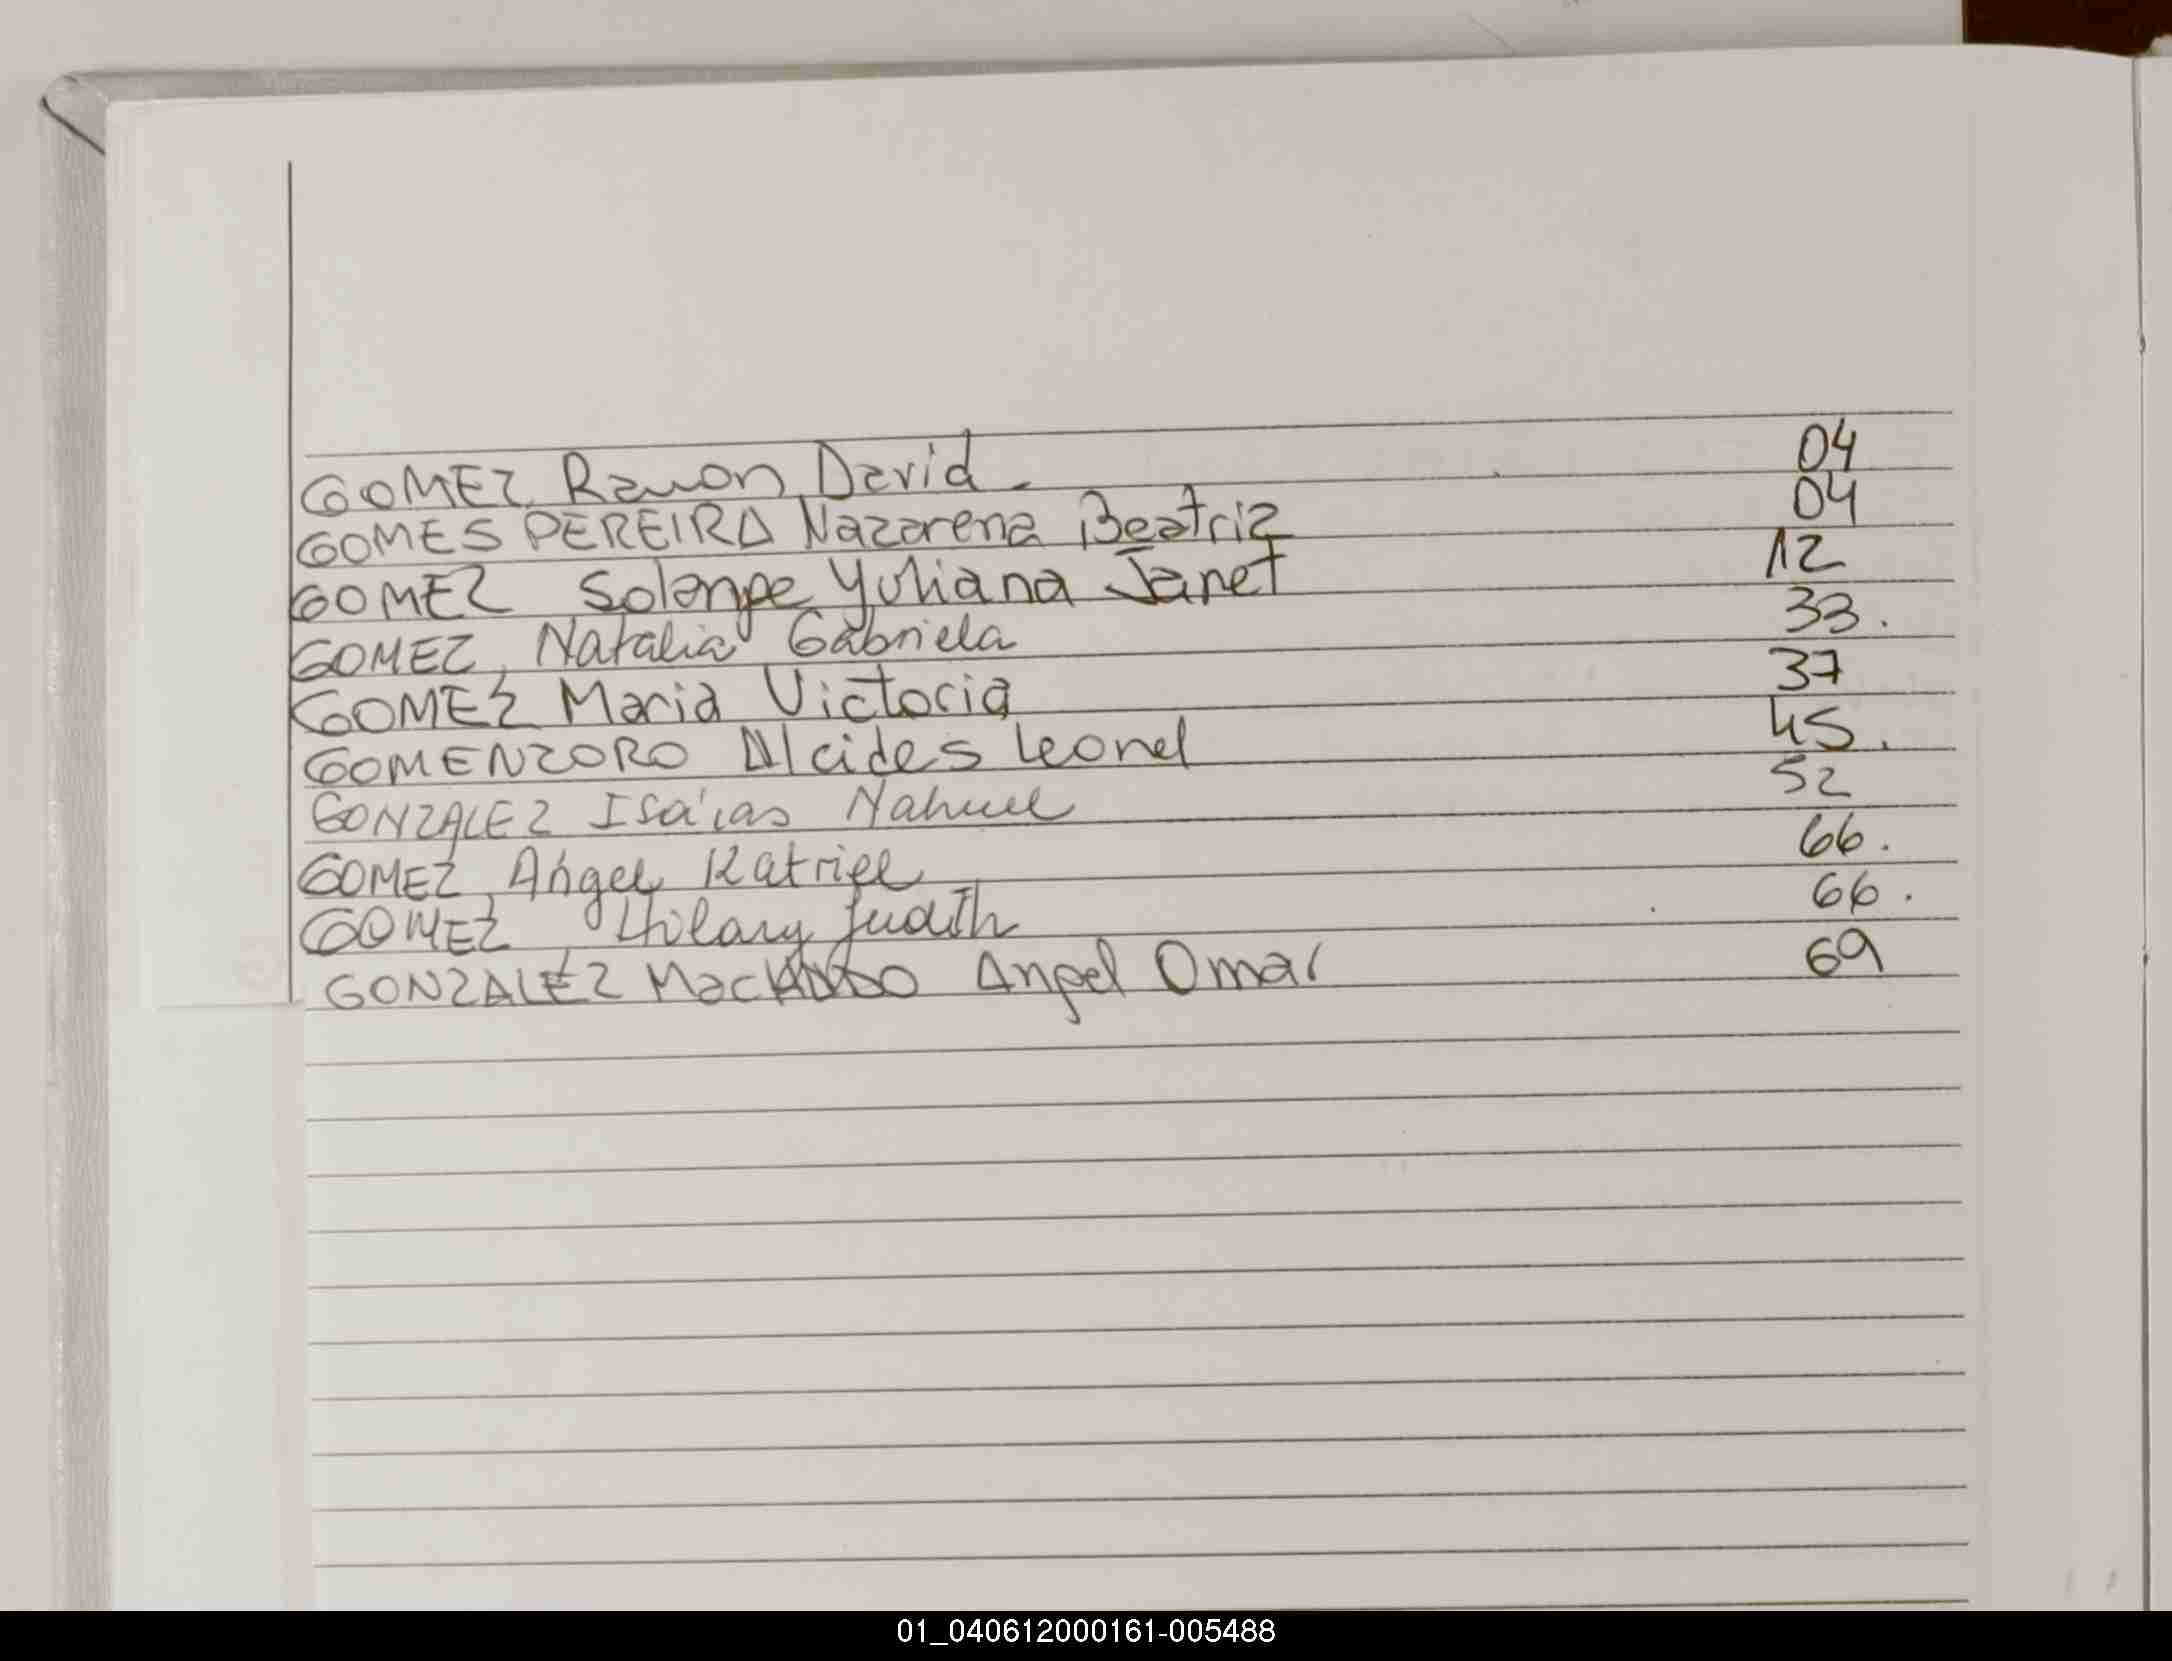 GOMEZ, Ramon David. 04
GOMES PEREIRA Nazarena Beatriz 04
GOMEZ Solange Yuliana Janet 12
GOMEZ, Natalia Gabriela 33.
GOMEZ Maria Victoria 37
GOMENZORO Alcides Leonel 45.
GONZALEZ Isaías Nahuel 52
GOMEZ, Angel Katriel 66.
GOMEZ Hilary Judith 66.
GONZALEZ MacHADO Angel Omar 69
01_040612000161-005488